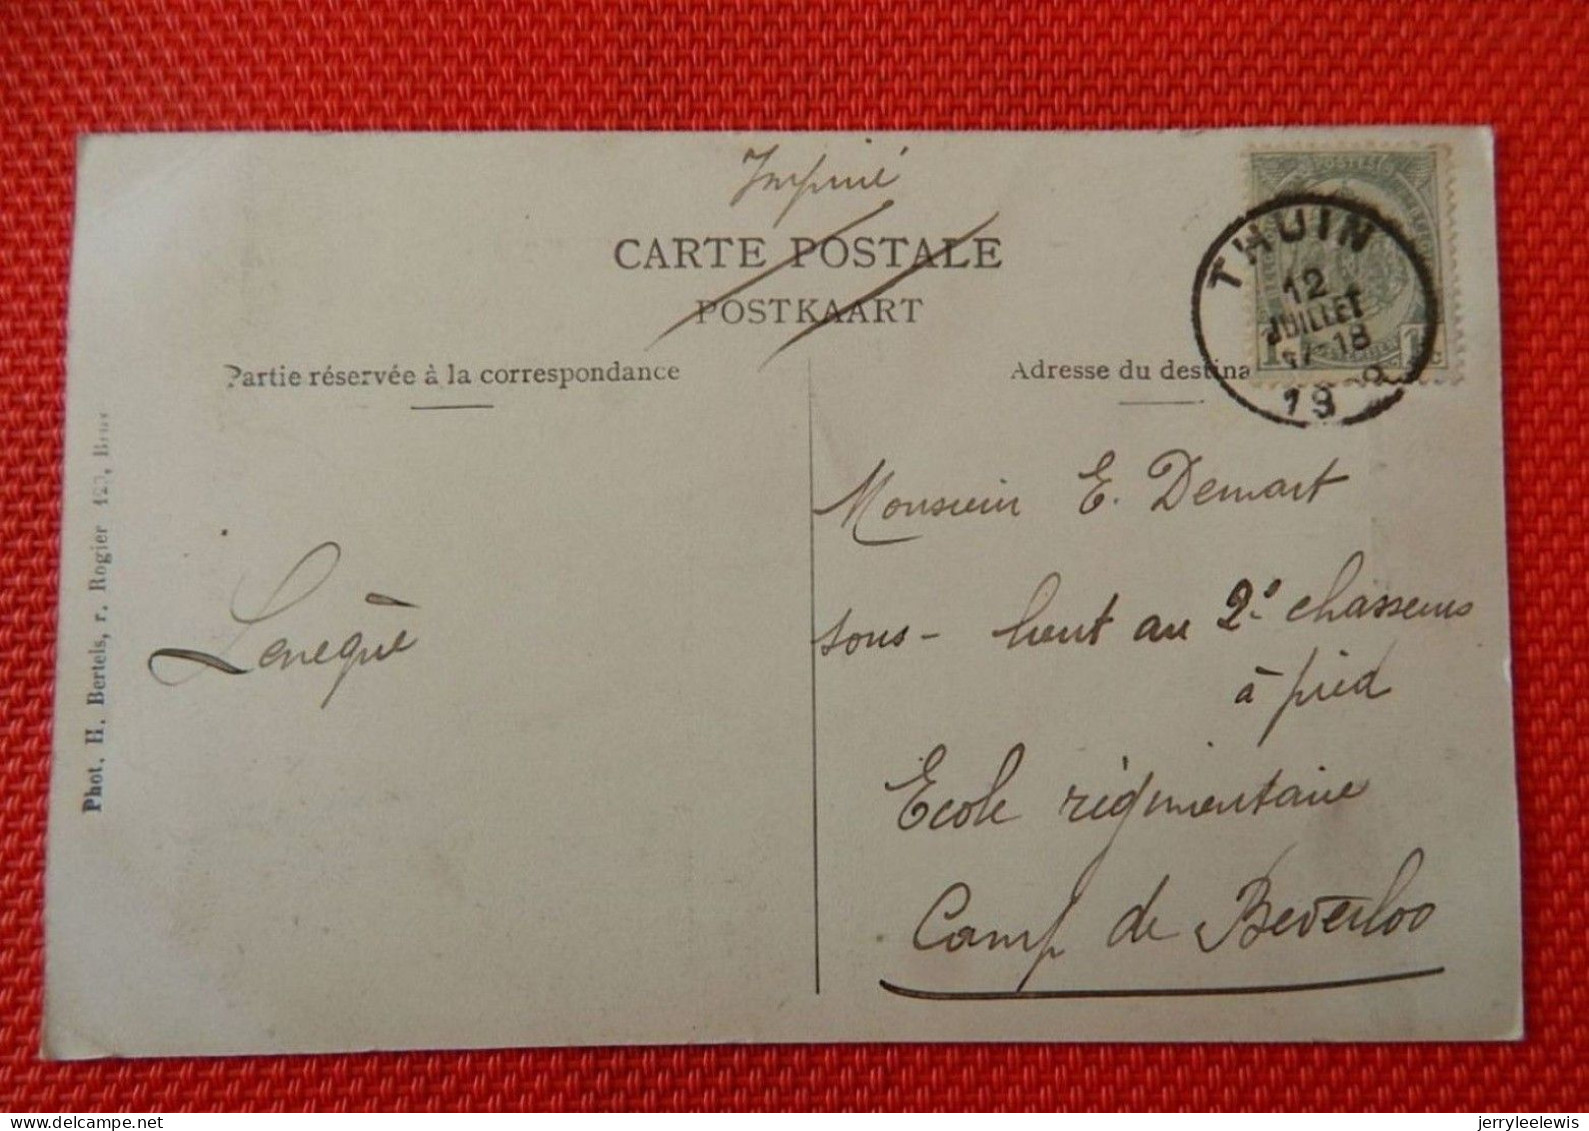 Imprimé
CARTE POSTALE
POSTKAART
Partie réservée à la correspondance
Adresse du destina
POSTES
THUIN
12
JUILLET
17-18
19
Phot. H. Bertels, r. Rogier 123, Brux
Monsieur E. Demart
sous-lieut au 2e chasseurs
à pied
Ecole régimentaire
Camp de Beverloo
jerryleelewis